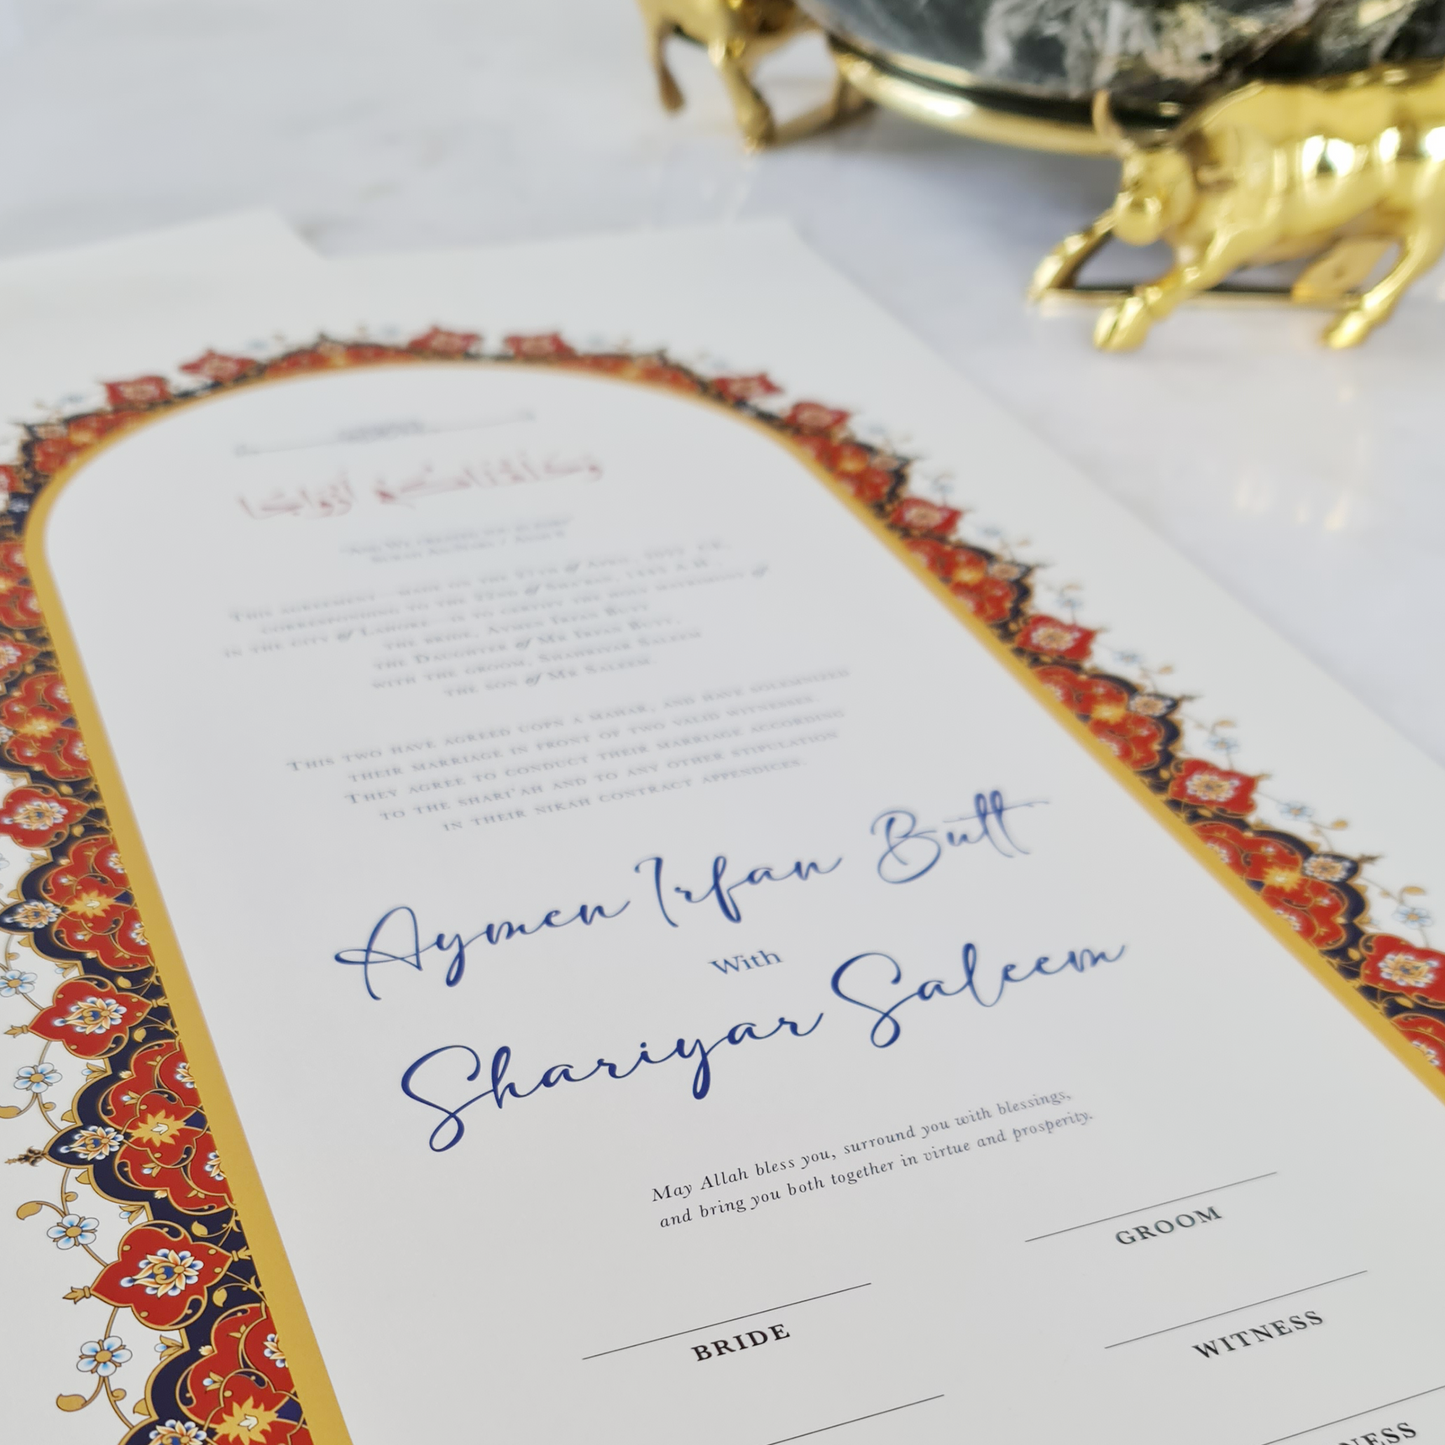 وَخَلَقْنَاكُمْ أَزْوَاجًا
THIS AGREEMENT—MADE ON THE 27TH of APRIL,
CORRESPONDING TO THE 22ND of
IN THE CITY of LAHORE—IS TO CERTIFY THE HOLY MATRIMONY of
THE BRIDE, AYMEN IRFAN BUTT
THE DAUGHTER of MR IRFAN BUTT,
WITH THE GROOM, SHAHRIYAR SALEEM
THE SON of MR SALEEM.
THIS TWO HAVE AGREED UOPN A MAHAR, AND HAVE SOLEMNIZED
THEIR MARRIAGE IN FRONT OF TWO VALID WITNESSES.
THEY AGREE TO CONDUCT THEIR MARRIAGE ACCORDING
TO THE SHARI'AH AND TO ANY OTHER STIPULATION
IN THEIR NIKAH CONTRACT APPENDICES.
Aymen Irfan Butt
With
Shariyar Saleem
May Allah bless you, surround you with blessings,
and bring you both together in virtue and prosperity.
GROOM
BRIDE
WITNESS
NESS